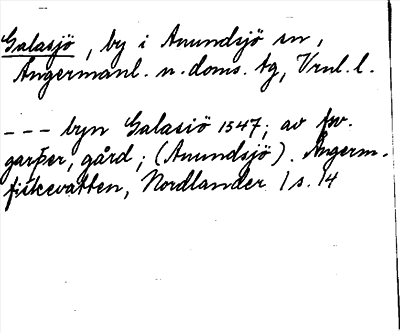 Galasjö, by i Anundsjö sn,
Ångermanl. n. doms. tg, Vrnl. l.
--- byn Galasiö 1547; av fsv.
garþer, gård; (Anundsjö). Ångerm.
fiskevatten, Nordlander 1 s. 14